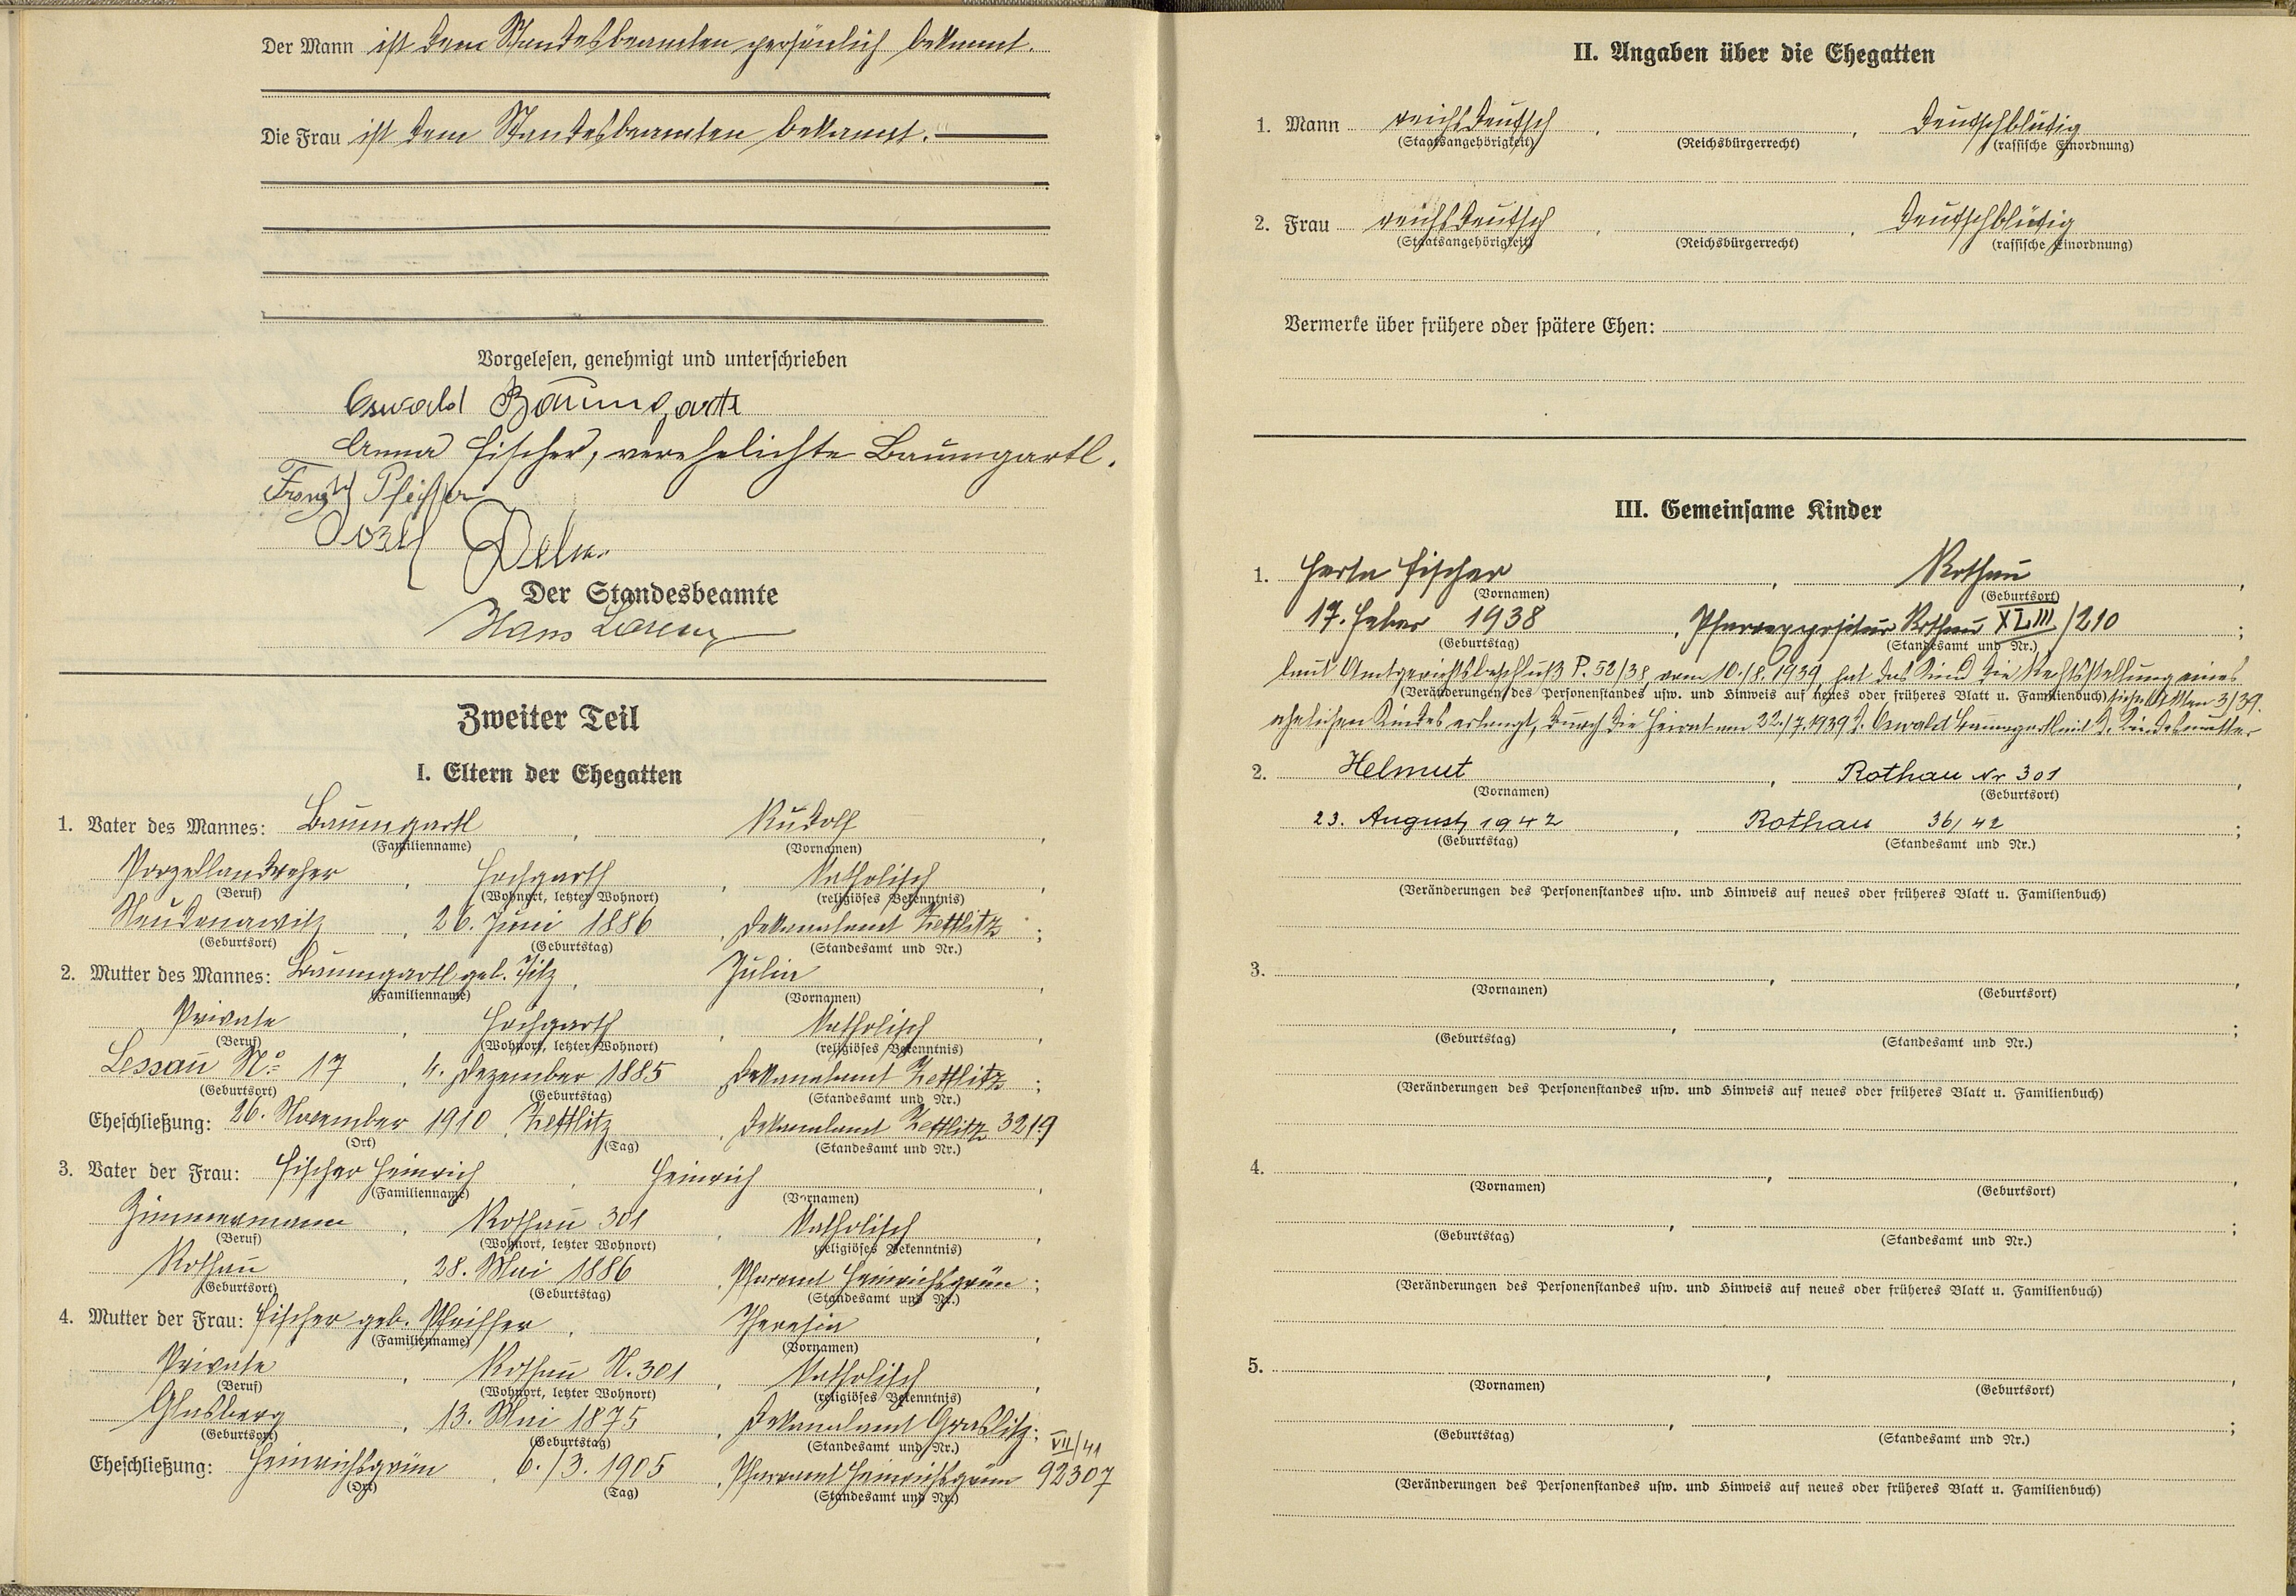 Der Mann ist dem Standesbeamten persönlich bekannt.
Die Frau ist dem Standesbeamten bekannt.
Vorgelesen, genehmigt und unterschrieben
Oswald Baumgartl
Anna Fischer, verehelichte Baumgartl.
Franz Pfeiffer
Der Standesbeamte
Hans Lorenz
Zweiter Teil
I. Eltern der Ehegatten
1. Vater des Mannes: Baumgartl, Rudolf,
(Familienname) (Vornamen)
Porzellandreher, Hochgarth, katholisch,
(Beruf) (Wohnort, letzter Wohnort) (religiöses Bekenntnis)
26. Juni 1886, Dekanalamt Zettlitz;
(Geburtsort) (Geburtstag) (Standesamt und Nr.)
2. Mutter des Mannes: Baumgartl geb. Pilz, Julia,
(Familienname) (Vornamen)
Private, Hochgarth, katholisch,
(Beruf) (Wohnort, letzter Wohnort) (religiöses Bekenntnis)
Lessau No 17, 4. Dezember 1885 Dekanalamt Zettlitz;
(Geburtsort) (Geburtstag) (Standesamt und Nr.)
Eheschließung: 26. November 1910, Zettlitz, Dekanalamt Zettlitz 3219
(Ort) (Tag) (Standesamt und Nr.)
3. Vater der Frau: Fischer Heinrich, Heinrich,
(Familienname) (Vornamen)
Zimmermann, Rothau 301, katholisch,
(Beruf) (Wohnort, letzter Wohnort) (religiöses Bekenntnis)
Rothau, 28. Mai 1886, Pfarramt Heinrichsgrün;
(Geburtsort) (Geburtstag) (Standesamt und Nr.)
4. Mutter der Frau: Fischer geb. Pfeiffer, Theresia,
(Familienname) (Vornamen)
Private, Rothau N. 301, katholisch,
(Beruf) (Wohnort, letzter Wohnort) (religiöses Bekenntnis)
Glasberg, 13. Mai 1875, Dekanalamt Graslitz; VII/41
(Geburtsort) (Geburtstag) (Standesamt und Nr.)
Eheschließung: Heinrichsgrün, 6./3. 1905, Pfarramt Heinrichsgrün 92307
(Ort) (Tag) (Standesamt und Nr.)
II. Angaben über die Ehegatten
1. Mann reichsdeutsch, , deutschblütig
(Staatsangehörigkeit) (Reichsbürgerrecht) (rassische Einordnung)
2. Frau reichsdeutsch, , deutschblütig
(Staatsangehörigkeit) (Reichsbürgerrecht) (rassische Einordnung)
Vermerke über frühere oder spätere Ehen:
III. Gemeinsame Kinder
1. Herta Fischer, Rothau,
(Vornamen) (Geburtsort)
17. Feber 1938, Pfarrexpositur Rothau XLIII/210;
(Geburtstag) (Standesamt und Nr.)
laut Amtsgerichtsbeschluß P. 52/38, vom 10./8. 1939, hat das Kind die Rechtsstellung eines
(Veränderungen des Personenstandes usw. und Hinweis auf neues oder früheres Blatt u. Familienbuch) siehe Akten 3/39.
ehelichen Kindes erlangt, durch die Heirat am 22./7. 1939 d. Oswald Baumgartl mit d. Kindesmutter
2. Helmut, Rothau Nr 301,
(Vornamen) (Geburtsort)
23. August 1942, Rothau 36/42;
(Geburtstag) (Standesamt und Nr.)
(Veränderungen des Personenstandes usw. und Hinweis auf neues oder früheres Blatt u. Familienbuch)
3. , ,
(Vornamen) (Geburtsort)
, ;
(Geburtstag) (Standesamt und Nr.)
(Veränderungen des Personenstandes usw. und Hinweis auf neues oder früheres Blatt u. Familienbuch)
4. , ,
(Vornamen) (Geburtsort)
, ;
(Geburtstag) (Standesamt und Nr.)
(Veränderungen des Personenstandes usw. und Hinweis auf neues oder früheres Blatt u. Familienbuch)
5. , ,
(Vornamen) (Geburtsort)
, ;
(Geburtstag) (Standesamt und Nr.)
(Veränderungen des Personenstandes usw. und Hinweis auf neues oder früheres Blatt u. Familienbuch)